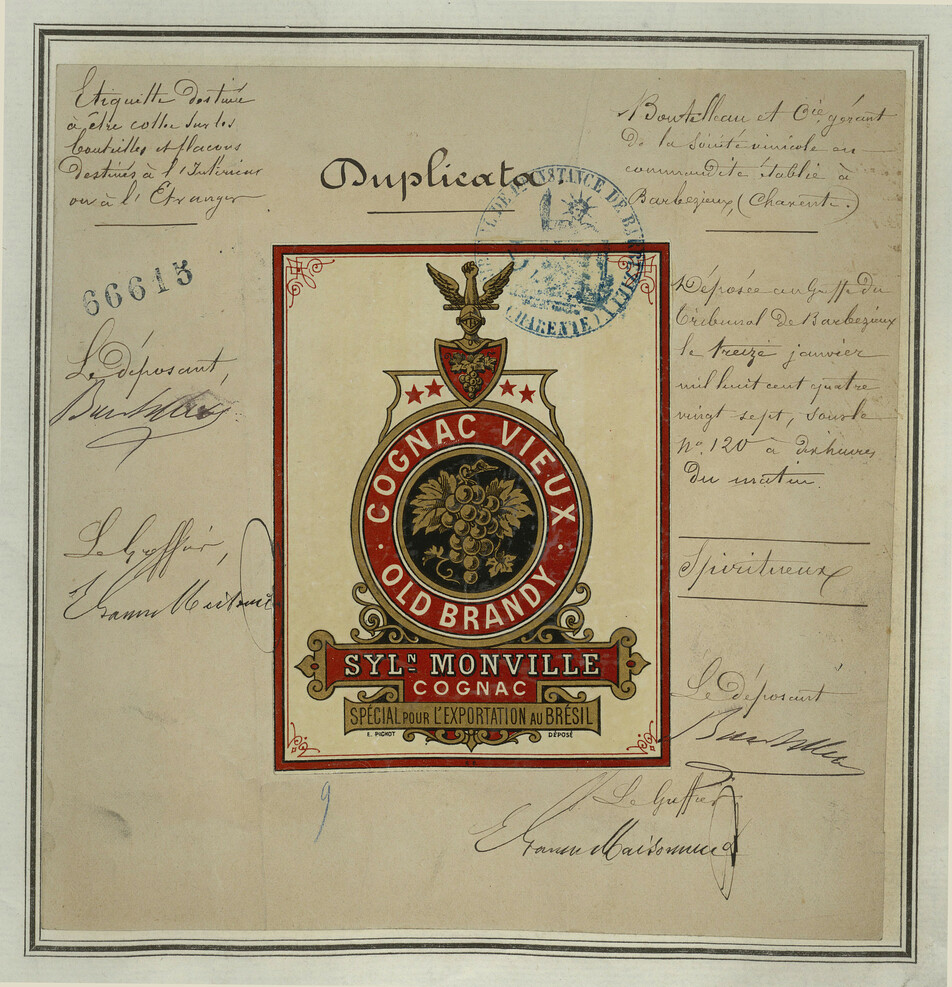 Etiquette destinée
à être collée sur les
bouteilles et flacons
destinés à l'Intérieur
ou à l'Etranger
Duplicata
Boutelleau et Cie gérant
de la Société vinicole en
commandite établie à
Barbezieux, (Charente.)
TRIBUNAL DE 1RE INSTANCE DE BARBEZIEUX
(CHARENTE)
66615
Le déposant,
Boutelleau
Le Greffier,
COGNAC VIEUX
OLD BRANDY
SYLN MONVILLE
COGNAC
SPÉCIAL POUR L'EXPORTATION AU BRÉSIL
E. PICHOT
DÉPOSÉ
Déposée au Greffe du
Tribunal de Barbezieux
le treize janvier
mil huit cent quatre
vingt sept, sous le
no. 120 à dix heures
du matin.
Spiritueux
Le déposant
Boutelleau
9
Le Greffier